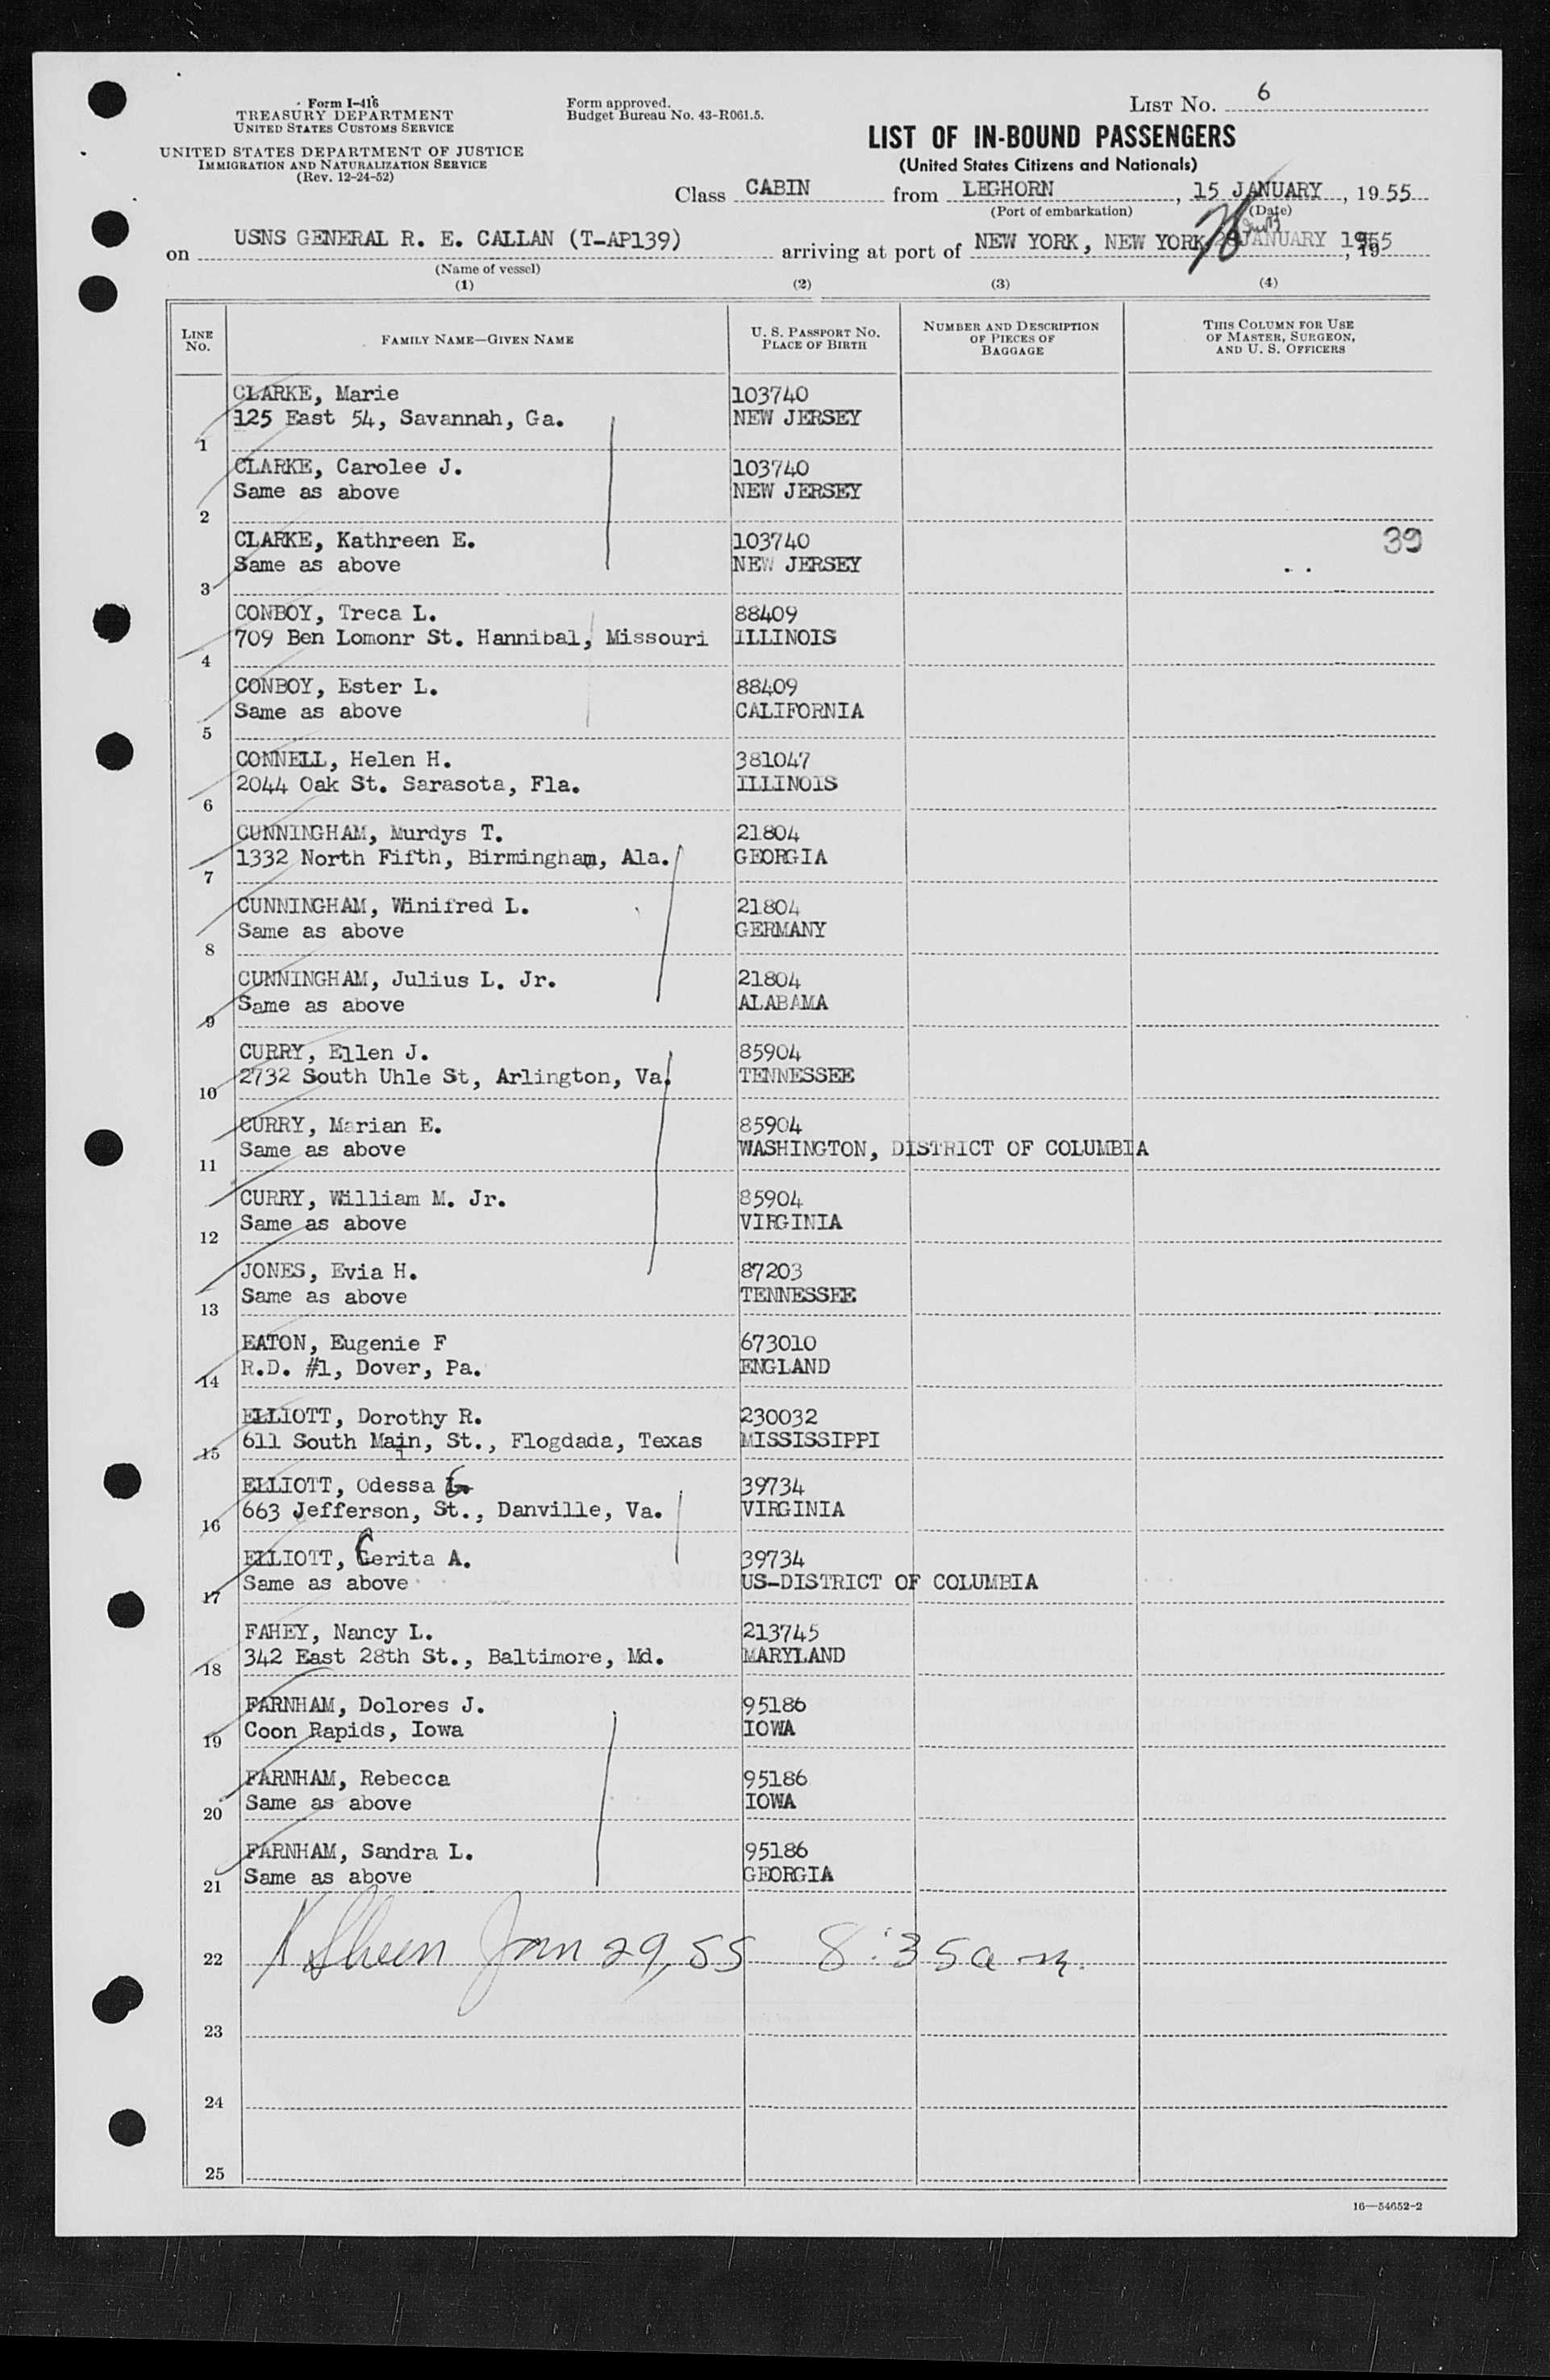 Form I-416
TREASURY DEPARTMENT
UNITED STATES CUSTOMS SERVICE
UNITED STATES DEPARTMENT OF JUSTICE
IMMIGRATION AND NATURALIZATION SERVICE
(Rev. 12-24-52)
Form approved.
Budget Bureau No. 43-R061.5.
LIST NO. 6
LIST OF IN-BOUND PASSENGERS
(United States Citizens and Nationals)
Class CABIN from LEGHORN, 15 JANUARY, 1955
(Port of embarkation) (Date)
on USNS GENERAL R. E. CALLAN (T-AP139) arriving at port of NEW YORK, NEW YORK JANUARY 1955, 19
(Name of vessel)
(1) (2) (3) (4)
LINE NO. FAMILY NAME—GIVEN NAME U. S. PASSPORT NO. PLACE OF BIRTH NUMBER AND DESCRIPTION OF PIECES OF BAGGAGE THIS COLUMN FOR USE OF MASTER, SURGEON, AND U. S. OFFICERS
CLARKE, Marie 103740
125 East 54, Savannah, Ga. NEW JERSEY
1
CLARKE, Carolee J. 103740
Same as above NEW JERSEY
2
CLARKE, Kathreen E. 103740 39
Same as above NEW JERSEY
3
CONBOY, Treca L. 88409
709 Ben Lomonr St. Hannibal, Missouri ILLINOIS
4
CONBOY, Ester L. 88409
Same as above CALIFORNIA
5
CONNELL, Helen H. 381047
2044 Oak St. Sarasota, Fla. ILLINOIS
6
CUNNINGHAM, Murdys T. 21804
1332 North Fifth, Birmingham, Ala. GEORGIA
7
CUNNINGHAM, Winifred L. 21804
Same as above GERMANY
8
CUNNINGHAM, Julius L. Jr. 21804
Same as above ALABAMA
9
CURRY, Ellen J. 85904
2732 South Uhle St, Arlington, Va. TENNESSEE
10
CURRY, Marian E. 85904
Same as above WASHINGTON, DISTRICT OF COLUMBIA
11
CURRY, William M. Jr. 85904
Same as above VIRGINIA
12
JONES, Evia H. 87203
Same as above TENNESSEE
13
EATON, Eugenie F 673010
R.D. #1, Dover, Pa. ENGLAND
14
ELLIOTT, Dorothy R. 230032
611 South Main, St., Flogdada, Texas MISSISSIPPI
15
ELLIOTT, Odessa G. 39734
663 Jefferson, St., Danville, Va. VIRGINIA
16
ELLIOTT, Cerita A. 39734
Same as above US-DISTRICT OF COLUMBIA
17
FAHEY, Nancy L. 213745
342 East 28th St., Baltimore, Md. MARYLAND
18
FARNHAM, Dolores J. 95186
Coon Rapids, Iowa IOWA
19
FARNHAM, Rebecca 95186
Same as above IOWA
20
FARNHAM, Sandra L. 95186
Same as above GEORGIA
21
22 Jan 29, 55 8:35 a m.
23
24
25
16—54652-2